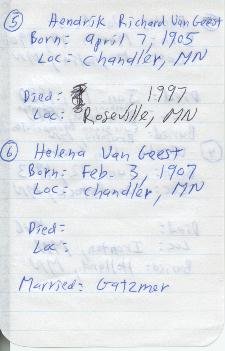 ⑤ Hendrik Richard Van Geest
Born: April 7, 1905
Loc: Chandler, MN
Died: 1997
Loc: Roseville, MN
⑥ Helena Van Geest
Born: Feb. 3, 1907
Loc: Chandler, MN
Died:
Loc:
Married: Gatzmer